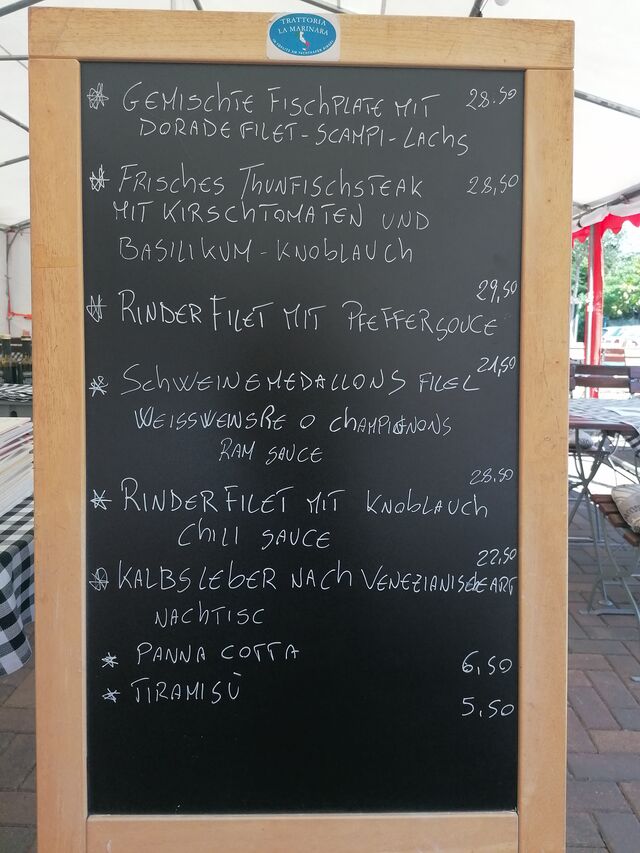 TRATTORIA
LA MARINARA
* GEMISCHTE FISCHPLATE MIT 28.50
DORADEFILET-SCAMPI-LACHS
* FRISCHES THUNFISCHSTEAK 28,50
MIT KIRSCHTOMATEN UND
BASILIKUM-KNOBLAUCH
29,50
* RINDERFILET MIT PFEFFERSOUCE
21,50
* SCHWEINEMEDALLONS FILEL
O CHAMPIGNONS
RAM SAUCE
28.50
* RINDERFILET MIT KNOBLAUCH
CHILI SAUCE
22,50
* KALBSLEBER NACH VENEZIANISCHEART
NACHTISC
* PANNA COTTA 6,50
* TIRAMISÙ 5,50